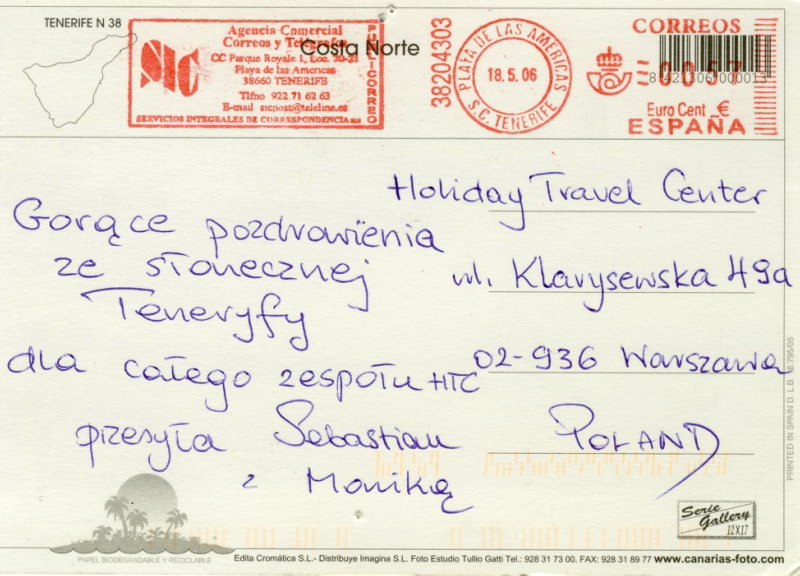 TENERIFE N 38
Costa Norte
Agencia Comercial
Correos y Telégrafos
CC Parque Royale I, Loc. 20-21
Playa de las Americas
38660 TENERIFE
Tlfno 922 71 62 63
E-mail sicpost@teleline.es
SERVICIOS INTEGRALES DE CORRESPONDENCIA
SIC
PUBLICORREO
38204303
PLAYA DE LAS AMERICAS
18.5.06
S.C. TENERIFE
CORREOS
8 421306 000013
0057
Euro Cent €
ESPAÑA
Gorące pozdrowienia
ze słonecznej
Teneryfy
dla całego zespołu HTC
przesyła Sebastian
z Moniką
Holiday Travel Center
ul. Klarysewska 49a
02-936 Warszawa
POLAND
PRINTED IN SPAIN D. L.B.
Serie
Gallery
12X17
PAPEL BIODEGRADABLE Y RECICLABLE
Edita Cromática S.L.- Distribuye Imagina S.L. Foto Estudio Tullio Gatti Tel.: 928 31 73 00. FAX: 928 31 89 77 www.canarias-foto.com